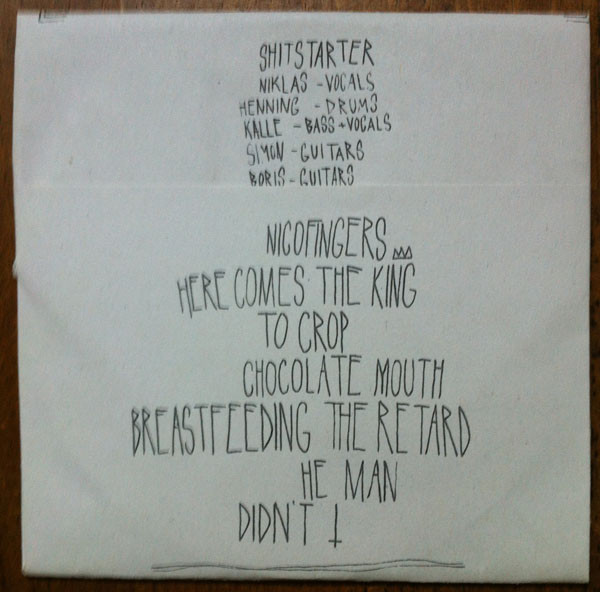 SHITSTARTER
NIKLAS - VOCALS
HENNING - DRUMS
KALLE - BASS + VOCALS
SIMON - GUITARS
BORIS - GUITARS
NICOFINGERS
HERE COMES THE KING
TO CROP
CHOCOLATE MOUTH
BREASTFEEDING THE RETARD
HE MAN
DIDN'T